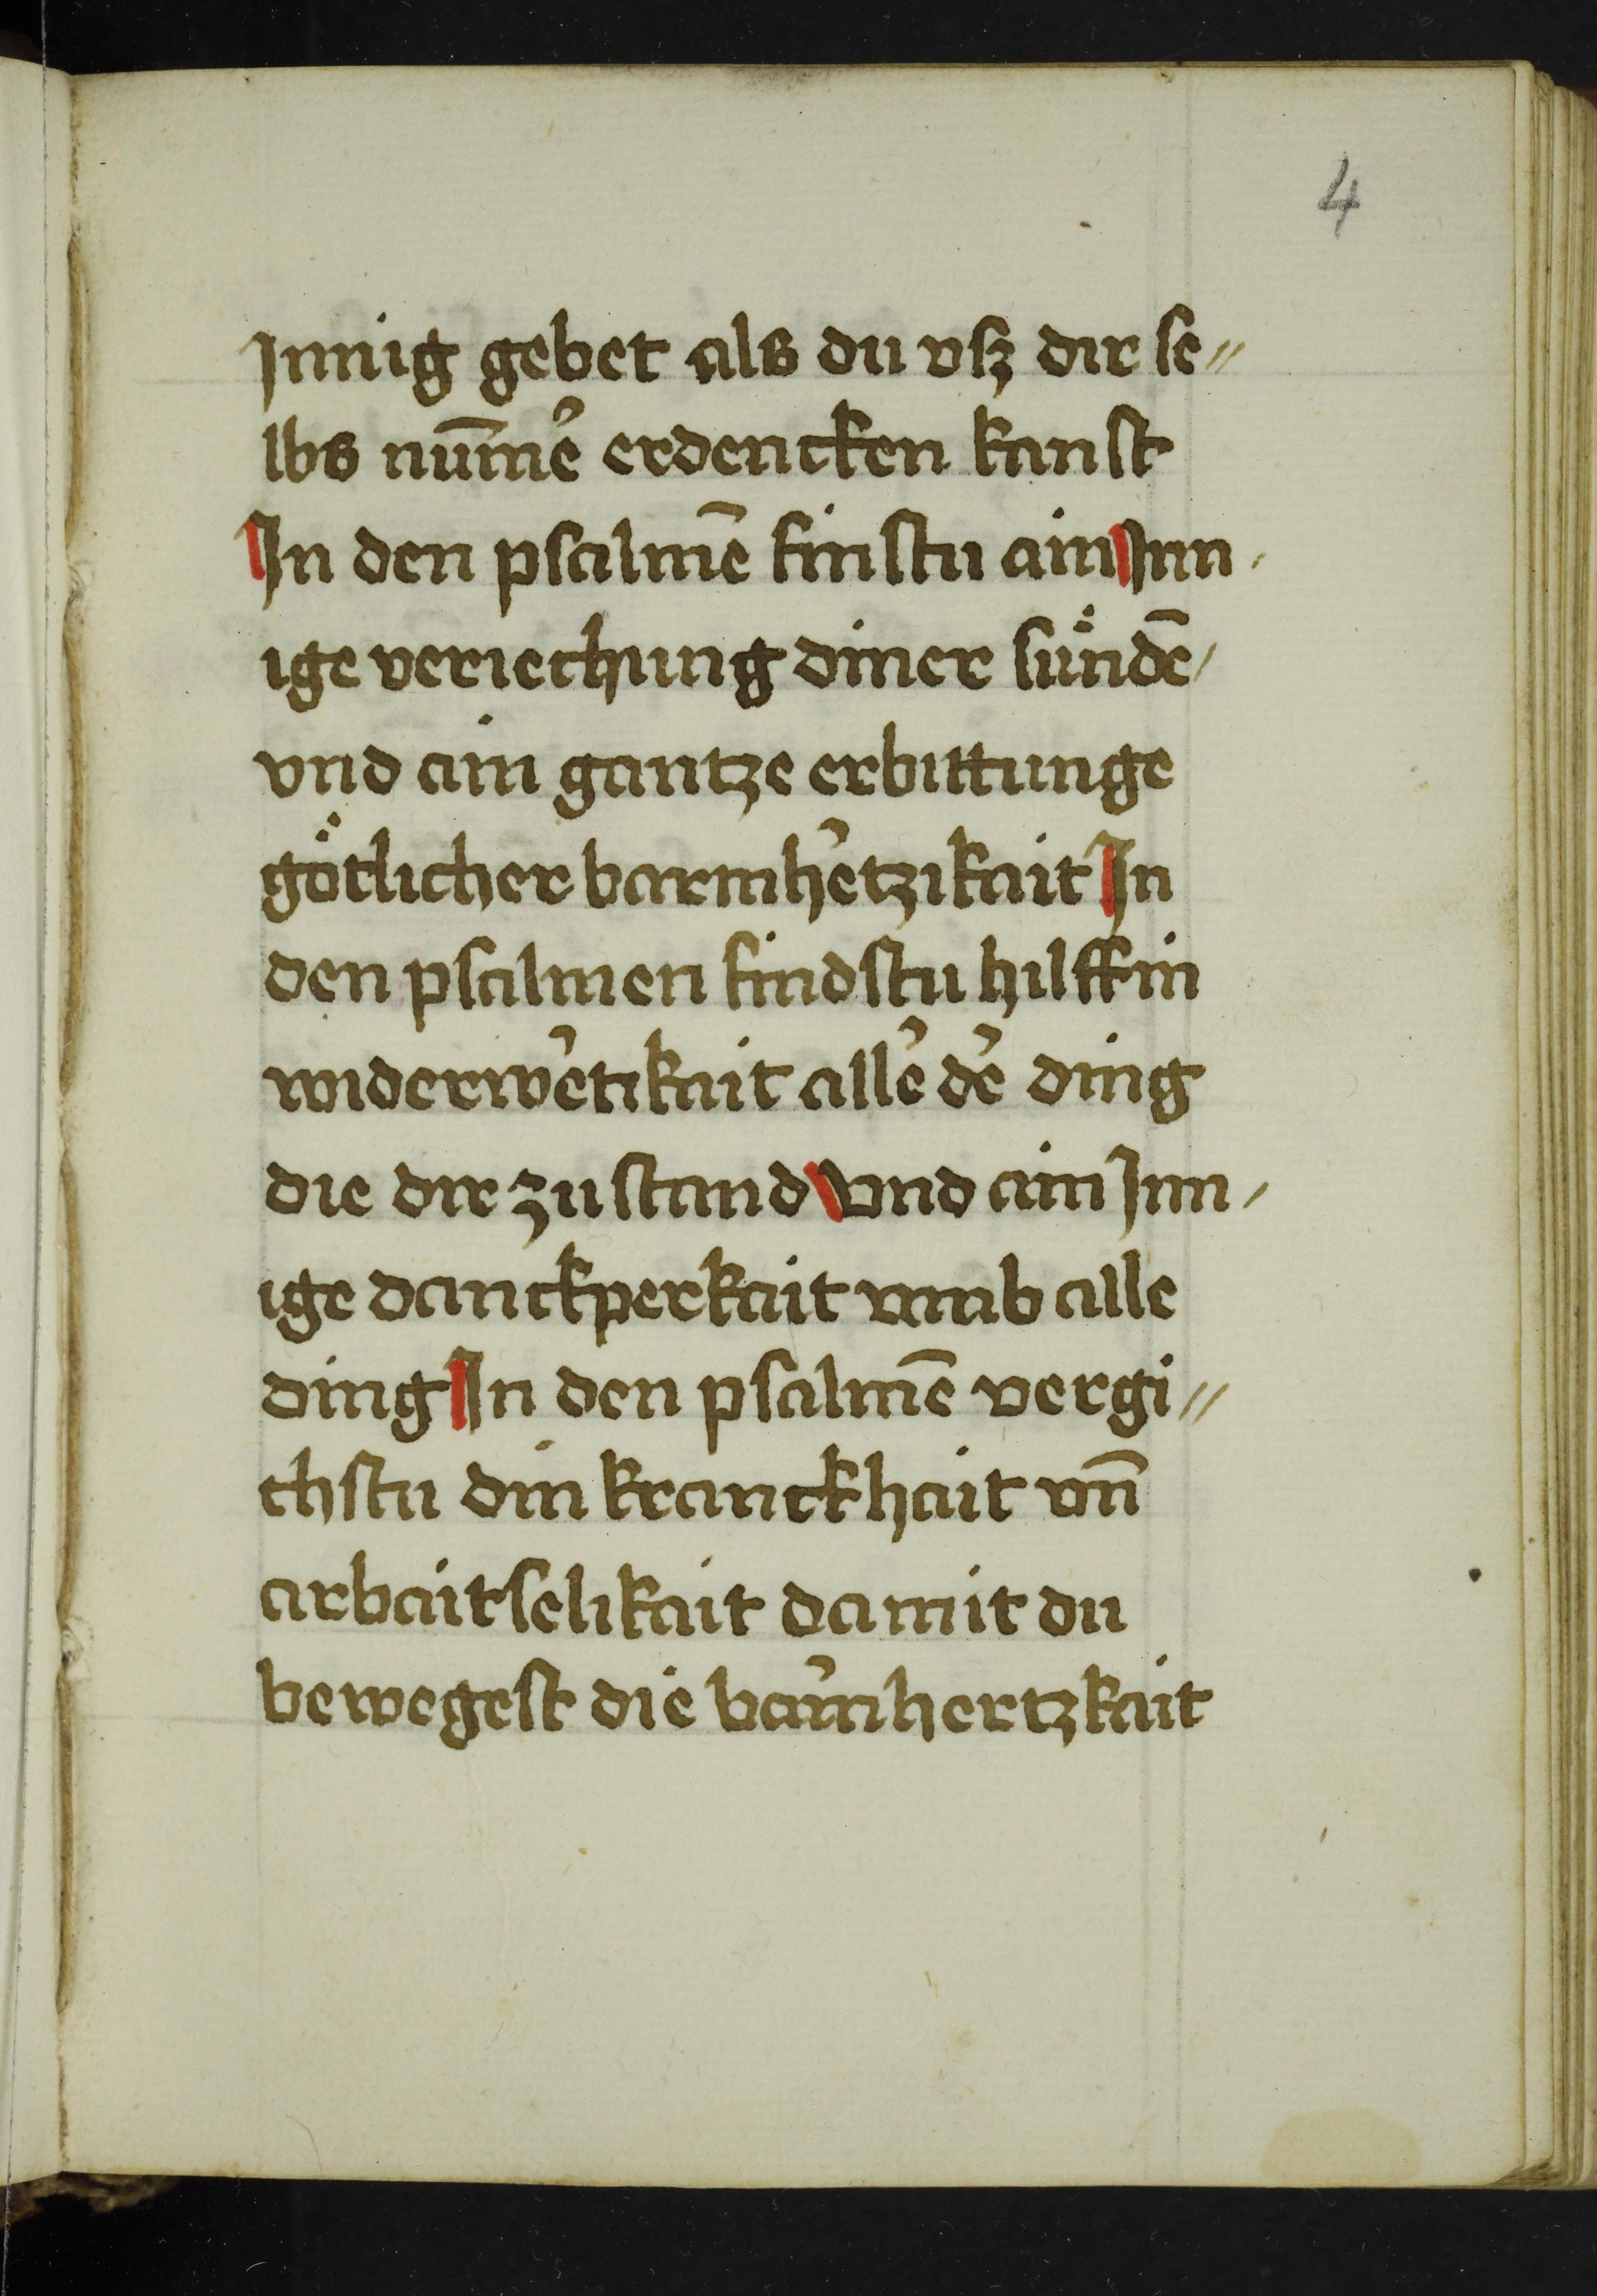 4
Jnnig gebet als du vsz dir se⸗
lbs num̄e᷑ erdencken kanst
Jn den psalmē finstu ain Jnn⸗
ige veriechung diner su̎ndē/
vnd ain gantze erbittunge
go̎tlicher barmhe᷑tzikait Jn
den psalmen findstu hilff in
widerwe᷑tikait alle᷑ de᷑ ding
die dir zu stand Vnd ain Jnn⸗
ige danckperkait vmb alle
ding Jn den psalmē vergi⸗
chstu din kranckhait vn̄
arbaitselikait da mit du
bewegest die ba᷑mhertzkait